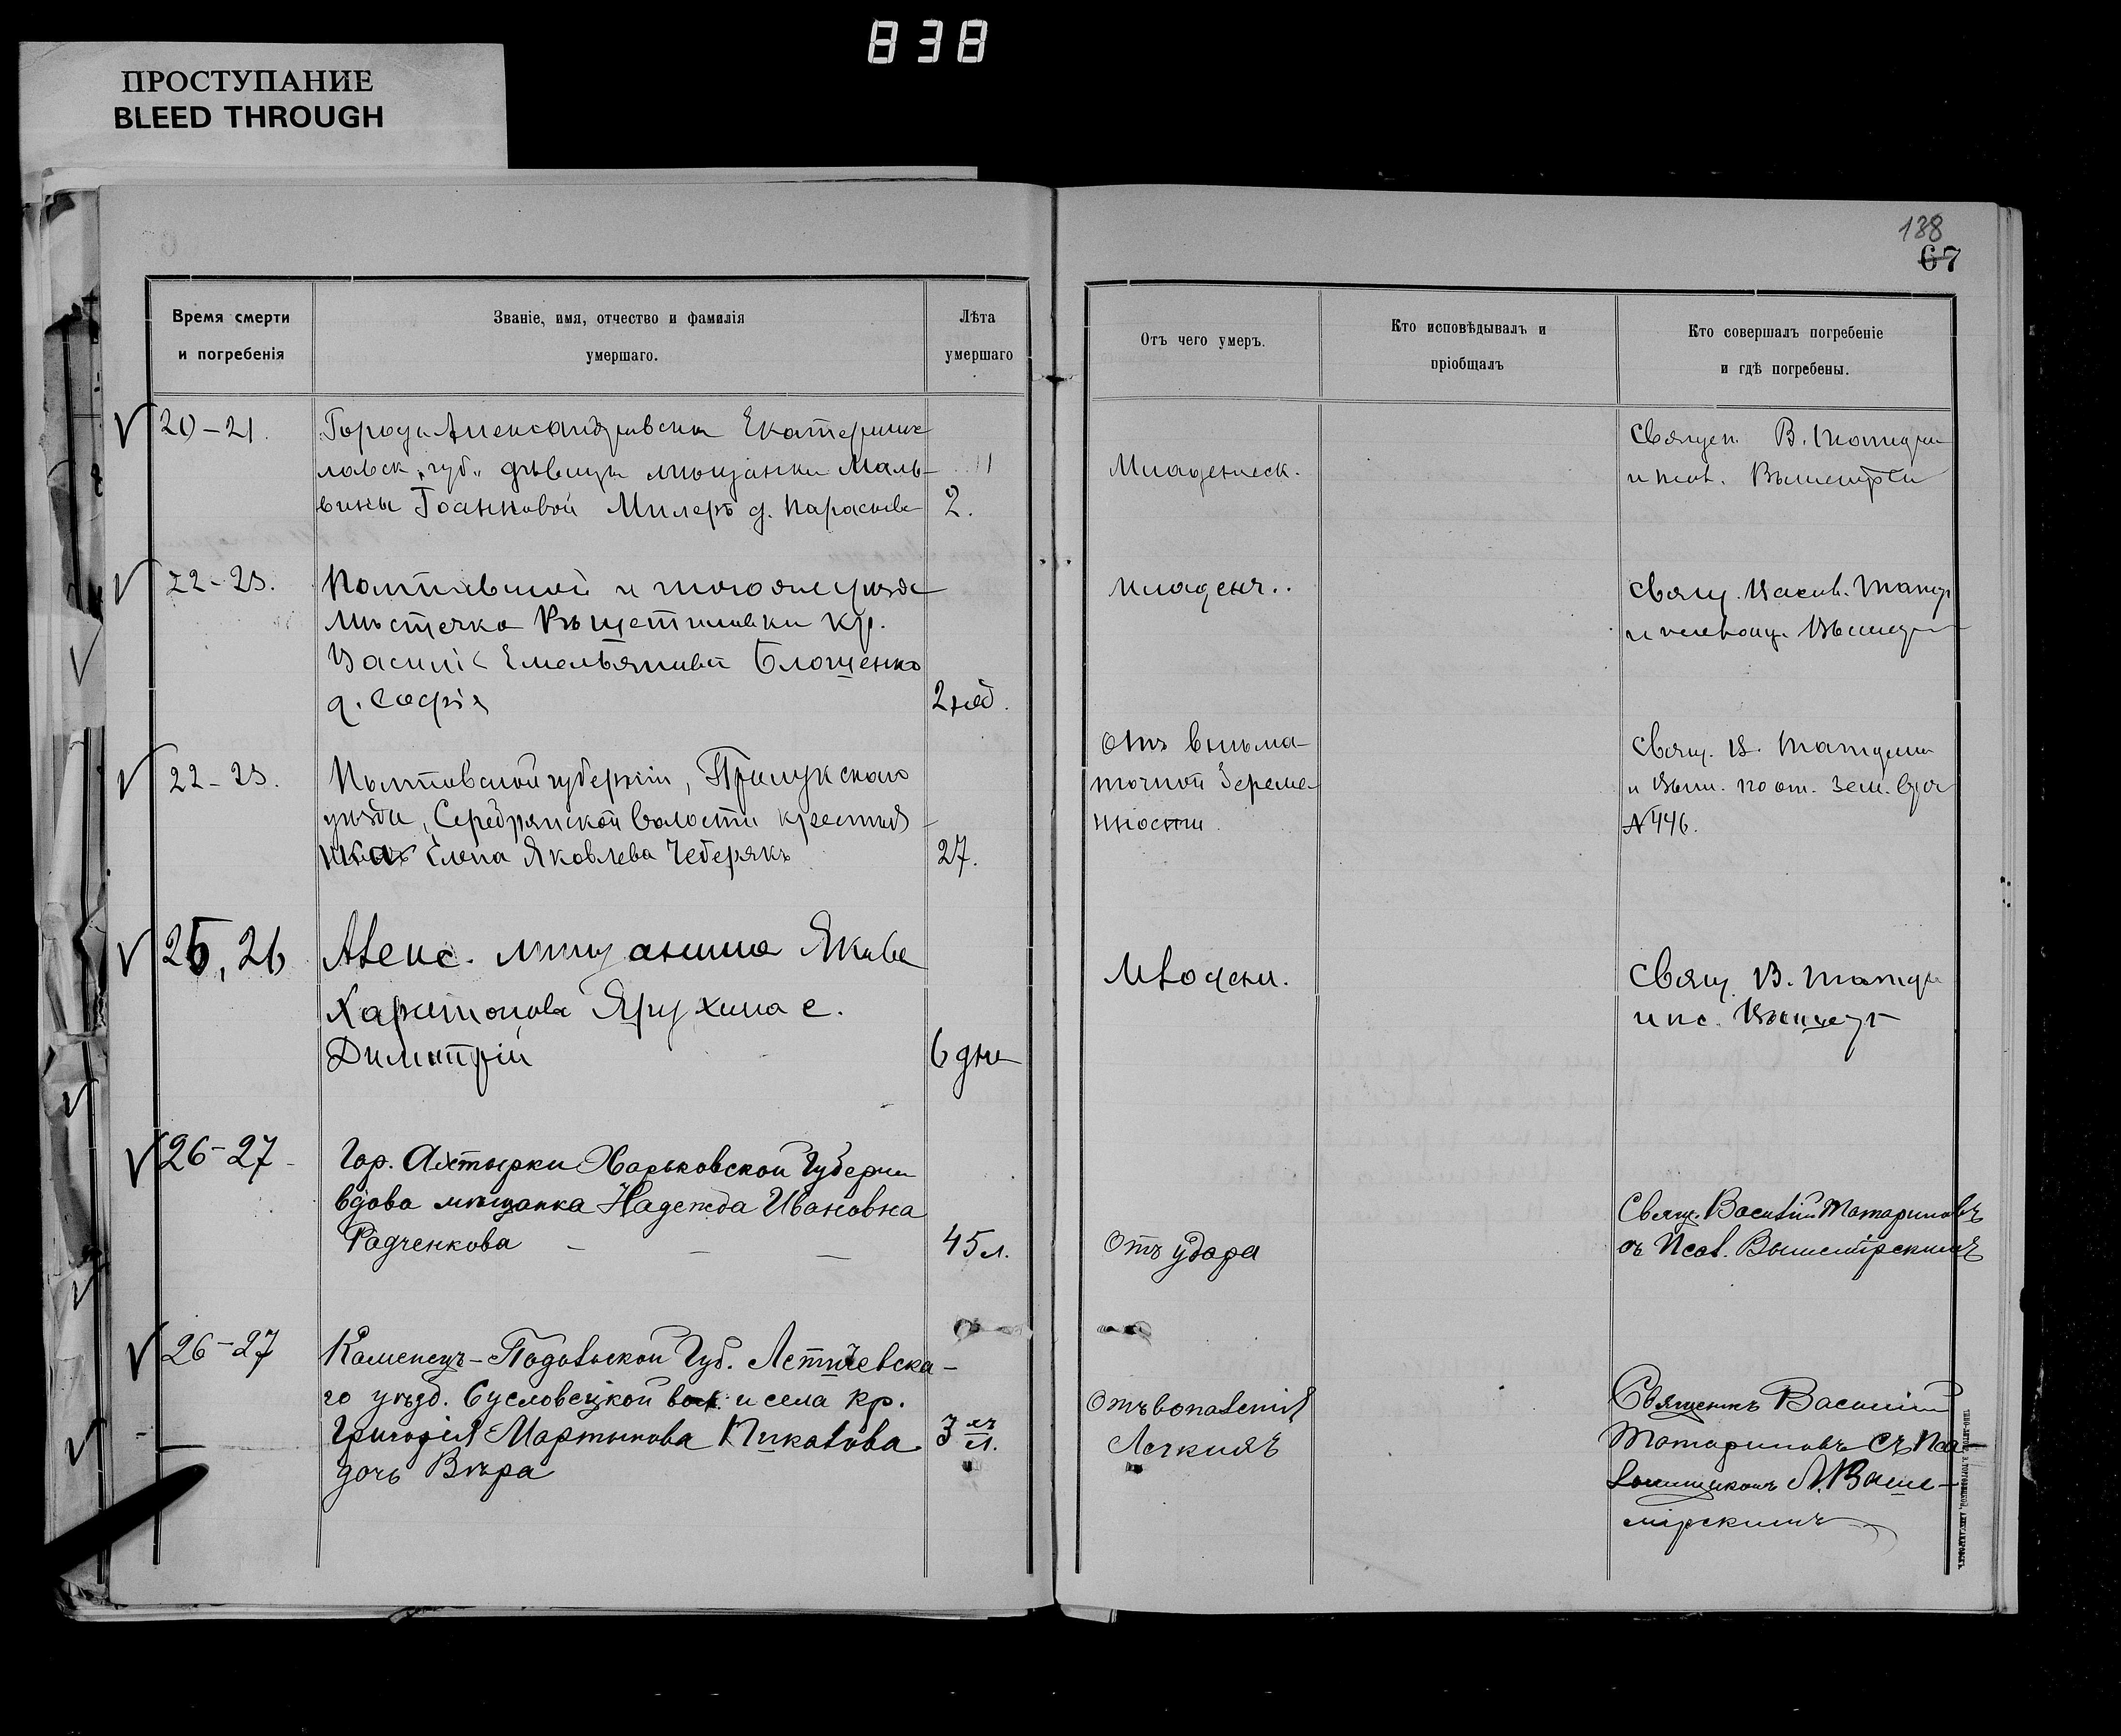 838
ПРОСТУПАНИЕ
BLEED THROUGH
138
67
Время смерти
и погребенія
Званіе, имя, отчество и фамилія
умершаго.
Лѣта
умершаго
Отъ чего умеръ.
Кто исповѣдывалъ и
пріобщалъ
Кто совершалъ погребеніе
и гдѣ погребены.
20-21.
Города Александровска Екатерино
лавск. губ. дѣвицы мѣщанки Маль-
вины Іоанновой Милеръ д. Параскева
2.
Младенческ.
Священ. В.
и псал.
22-23.
Полтавской и того же уѣзда
мѣстечка Рѣшетиловки кр.
Василія Емельянова Блощенко
д. Софія
2 нед.
Младенч..
Свящ. Васил.
22-23.
Полтавской губерніи, Прилукскаго
уѣзда, Серебрянской волости крестья-
нка Елена Яковлева Чеберякъ
27.
Отъ внѣма-
точной береме
нности
Свящ. В.
и Выш. по от. зем. врач
№ 446.
25, 26
Алекс. мѣщанина Якова
Харитонова Ярухина с.
Димитрій
6 дне
Свящ. В.
и пс.
26-27
Гор. Ахтырки Харьковской Губерни
вдова мѣщанка Надежда Ивановна
Радченкова
45 л.
Отъ удара
Свящ. Василій Татариновъ
съ Псал. Вышемірскимъ
26-27
Каменецъ-Подольской Губ. Летичевска-
го уѣзд. Сусловецкой вол. и села кр.
Григорія Мартынова Пикалова
дочь Вѣра
3 л.
Отъ вопаленія
Легкихъ
Священикъ Василій
Татариновъ съ Пса-
ломщикомъ Л. Выше-
мірскимъ